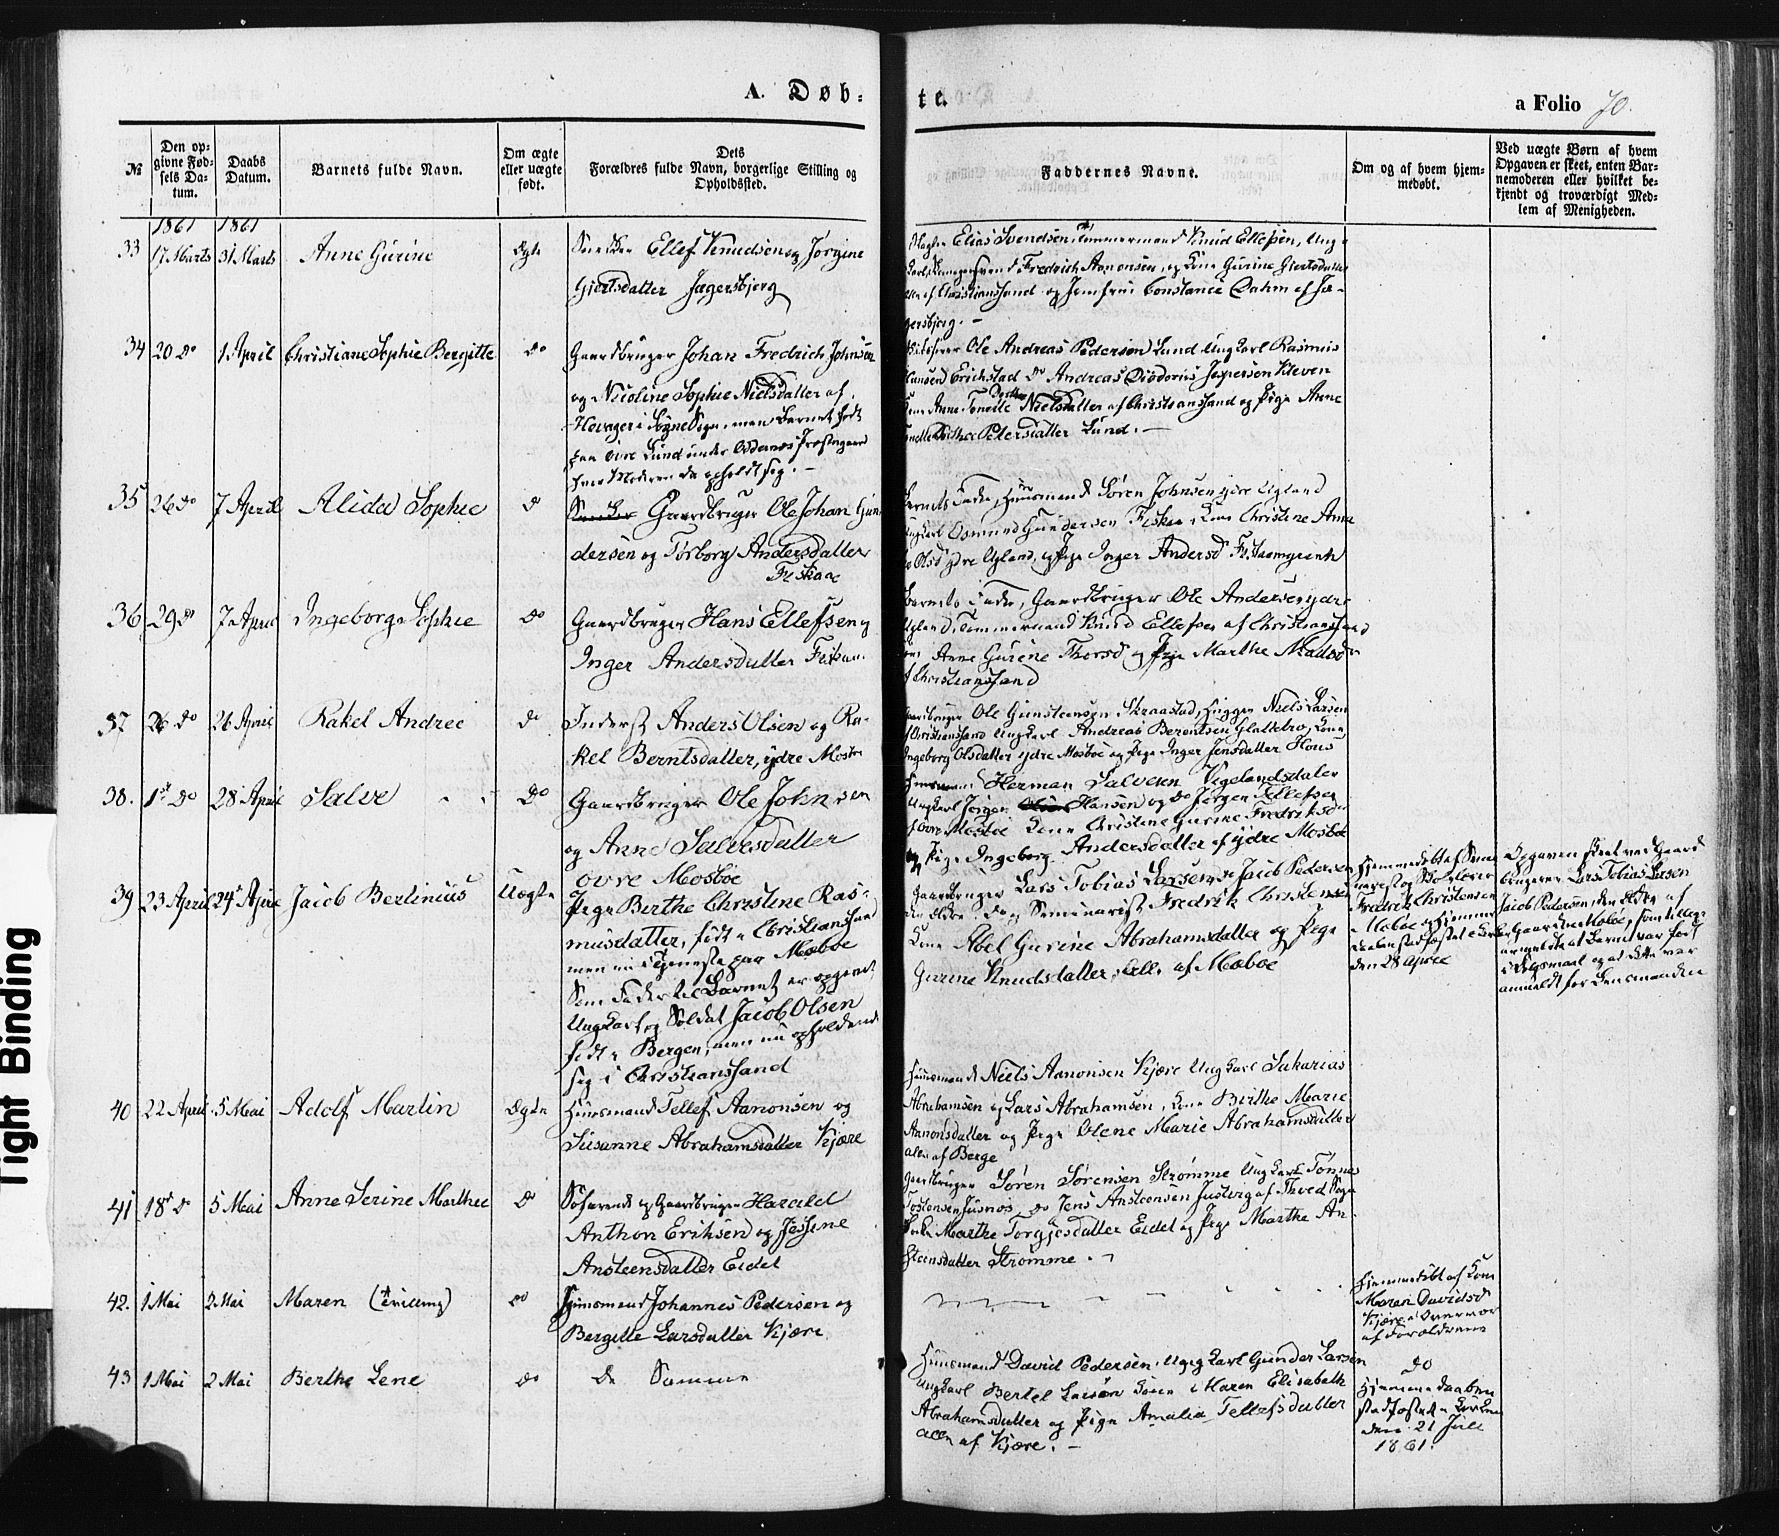 A. Døb-
te.
a Folio 70.
№
Den opgivne Fødsels Datum.
Daabs Datum.
Barnets fulde Navn.
Om ægte eller uægte født.
Dets Forældres fulde Navn, borgerlige Stilling og Opholdssted.
Faddernes Navne.
Om og af hvem hjemmedøbt.
Ved uægte Børn af hvem Opgaven er skeet, enten Barnemoderen eller hvilket bekjendt og troværdigt Medlem af Menigheden.
1861 1861
33 17 Marts 31 Marts Anne Gurine Ægte
Ellef Knudsen og Jørgine
Giertsdatter Jægersbjerg
Elias Svendsen, Tømmermand Knud Ellefsen, Ung-
Fredrich Aanonsen, og Kone Gurine Giertsdatter
af Christianssand og Jomfru Constance Dahm af Jæ-
gersbjerg. -
34 20 Do 1 April Christiane Sophie Bergitte Do
Gaardbruger Johan Fredrich Johnsen
og Nicoline Sophie Nielsdatter af
Høvager i Søgne Sogn, men Barnet født
paa Øvre Lund under Oddernes Præstegaard
hvor Moderen da opholdt sig. -
Ole Andreas Pedersen Lund Ungkarl Rasmus
Hansen Erichstad Do Andreas Diodorius Jespersen Kleven
Kone Anne Tonette Dorthea Nielsdatter af Christianssand og Pige Anne
Dorthea Pedersdatter Lund. -
35 26 Do 7 April Alida Sophie Do
Gaardbruger Ole Johan Gun-
dersen og Torborg Andersdatter
Fiskaa
Barnets Fader, Huusmand Søren Johnsen ydre Ugland
Ungkarl Osmund Gundersen Fiskaa, Kone Christine Anne
Olsd ydre Ugland, og Pige Inger Andersd
36 29 Do 7 April Ingeborg Sophie Do
Gaardbruger Hans Ellefsen og
Inger Andersdatter Fiskaa.
Barnets Fader, Gaardbruger Ole Andersen ydre
Ugland, Tømmermand Knud Ellefsen af Christianssand
Kone Anne Gurine Thorsd og Pige Marthe Madsd
af Christianssand
37 26 Do 26 April Rakel Andree Do
Inderst Anders Olsen og Ra-
kel Berntsdatter, ydre Mosbø
Gaardbruger Ole Gunstensen Skraastad, Hugger Niels Larsen
Christianssand Ungkarl Andreas Berentsen Glattebro, Kone
Ingeborg Olsdatter ydre Mosbøe og Pige Inger Jensdatter Hous
38. 1st Do 28 April Salve Do
Gaardbruger Ole Johnsen
og Anne Salvesdatter
øvre Mosbøe
Huusmand Herman Salvesen Vigelandsdalen
Ungkarl Jørgen Hansen og Do Jørgen Tellefsen
øvre Mosbøe Kone Christine Gurine Fredriksd
og Pige Ingeborg Andersdatter af ydre Mosbøe
39 23 April 24 April Jacob Berlinius Uægte
Pige Berthe Christine Ras-
musdatter, født i Christianssand
men nu i Tjeneste paa Mæbøe
Som Fader til Barnet er opgivet
Ungkarl og Soldat Jacob Olsen
født i Bergen, men nu opholdende
sig i Christianssand
Gaardbruger Lars Tobias Larsen, Do Jacob Pedersen
den Ældre, Do og Seminarist Fredrik Christensen
Kone Abel Gurine Abrahamsdatter og Pige
Gurine Knudsdatter, alle af Mæbøe
Hjemmedøbt af Semi-
narist og Skolelærer
Fredrik Christensen
Mæbøe og Hjemme-
daaben stadfæstet i Kirken
den 28 April
Opgaven skeet ved Gaard
brugerne Lars Tobias Larsen
Jacob Pedersen, den Ældre af
Gaarden Mæbøe, som tillige
anmeldte at Barnet var født
i Dølgsmaal og at dette var
anmeldt for Lensmanden
40 22 April 5 Mai Adolf Martin Ægte
Huusmand Tellef Aanonsen og
Susanne Abrahamsdatter Kjære
Huusmand Niels Aanonsen Kjære Ungkarl Sakarias
Abrahamsen og Lars Abrahamsen, Kone Birthe Marie
Aanonsdatter og Pige Olene Marie Abrahamsdatter
alle af Berge
41 18 Do 5 Mai Anne Serine Marthee Do
Søfarende og Gaardbruger Harald
Anthon Eriksen og Jossine
Ansteensdatter Eidet
Gaardbruger Søren Sørensen Strømme Ungkarl Tønnes
Jens Ansteensen Justvig af Tveed Sogn
Marthe Torgjesdatter Eidet og Pige Marthe An-
steensdatter Strømme. -
42. 1 Mai 2 Mai Maren (Tvilling) Do
Huusmand Johannes Pedersen og
Bergitte Larsdatter Kjære
Hjemmedøbt af Kone
Maren Davidsd
Kjære i Overvær
af Forældrene
43 1 Mai 2 Mai Berthe Lene Do
De Samme
Huusmand David Pedersen, Ungkarl Gunder Larsen
Ungkarl Bertel Larsen Kone Maren Elisabeth
Abrahamsdatter og Pige Amalia Tellefsdatter
alle af Kjære. -
Do
Hjemmedaaben
stadfæstet i Kirken
den 21 Juli
1861.
Tight Binding